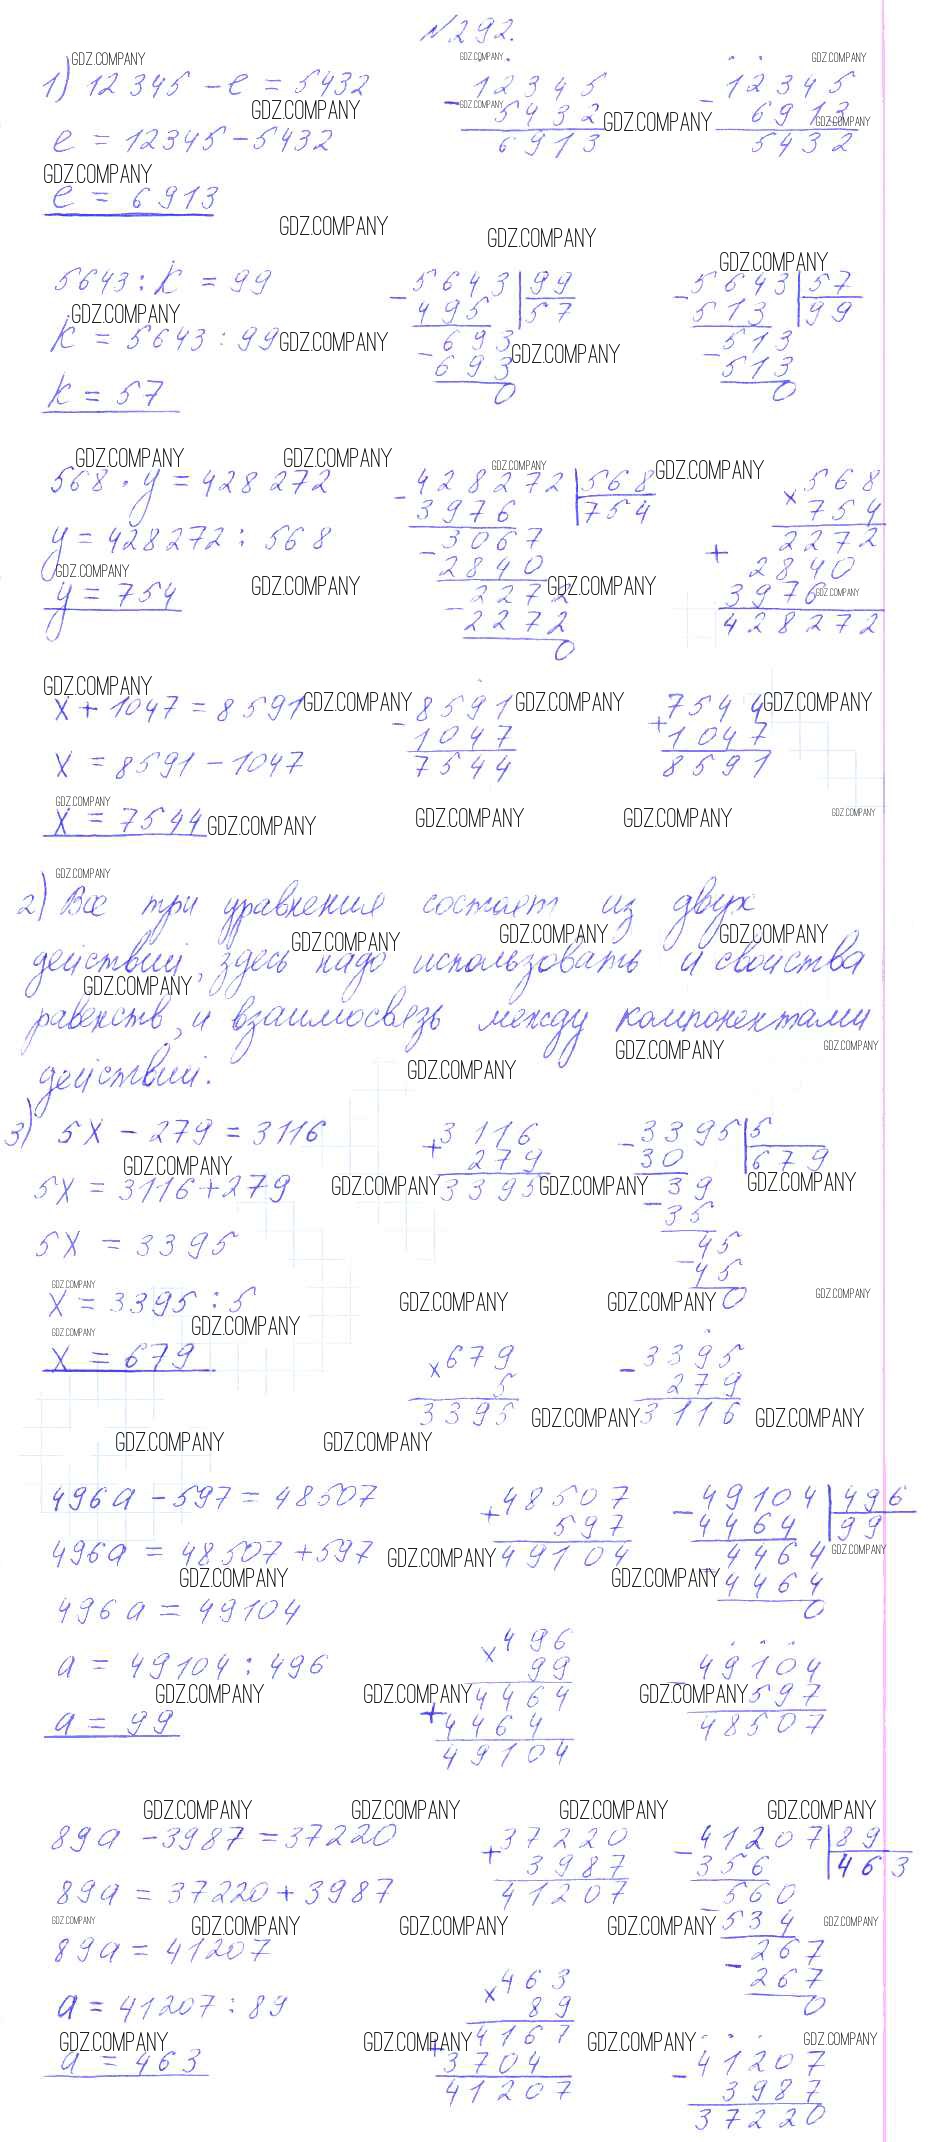 №292.
1) 12345 - e = 5432
e = 12345 - 5432
e = 6913
12345
- 5432
6913
12345
- 6913
5432
5643 : k = 99
k = 5643 : 99
k = 57
- 5643 | 99
495 | 57
- 693
693
0
- 5643 | 57
513 | 99
- 513
513
0
568 · y = 428272
y = 428272 : 568
y = 754
- 428272 | 568
3976 | 754
- 3067
2840
- 2272
2272
0
× 568
754
2272
+ 2840
3976
428272
x + 1047 = 8591
x = 8591 - 1047
x = 7544
- 8591
1047
7544
7544
+ 1047
8591
2) Все три уравнения состоят из двух
действий, здесь надо использовать и свойства
равенств, и взаимосвязь между компонентами
действий.
3) 5x - 279 = 3116
5x = 3116 + 279
5x = 3395
x = 3395 : 5
x = 679
+ 3116
279
3395
- 3395 | 5
30 | 679
- 39
35
- 45
45
0
× 679
5
3395
- 3395
279
3116
496a - 597 = 48507
496a = 48507 + 597
496a = 49104
a = 49104 : 496
a = 99
+ 48507
597
49104
- 49104 | 496
4464 | 99
4464
4464
0
× 496
99
4464
+ 4464
49104
49104
597
48507
89a - 3987 = 37220
89a = 37220 + 3987
89a = 41207
a = 41207 : 89
a = 463
+ 37220
3987
41207
- 41207 | 89
356 | 463
- 560
534
- 267
267
0
× 463
89
4167
+ 3704
41207
- 41207
3987
37220
GDZ.COMPANY